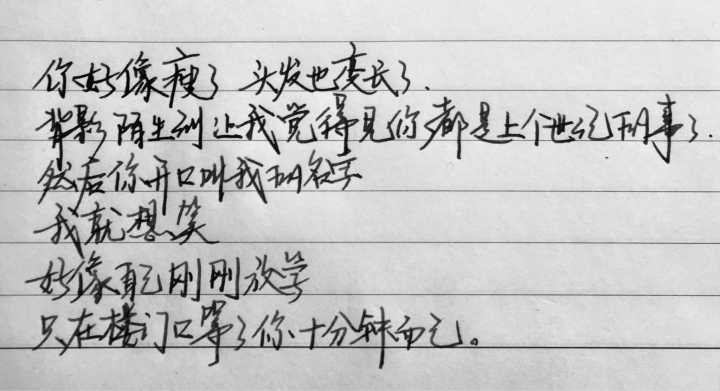 你好像瘦了 头发也变长了.
背影陌生到让我觉得见你都是上个世纪的事了.
然后你开口叫我的名字
我就想笑
好像自己刚刚放学
只在楼门口等了你十分钟而已。